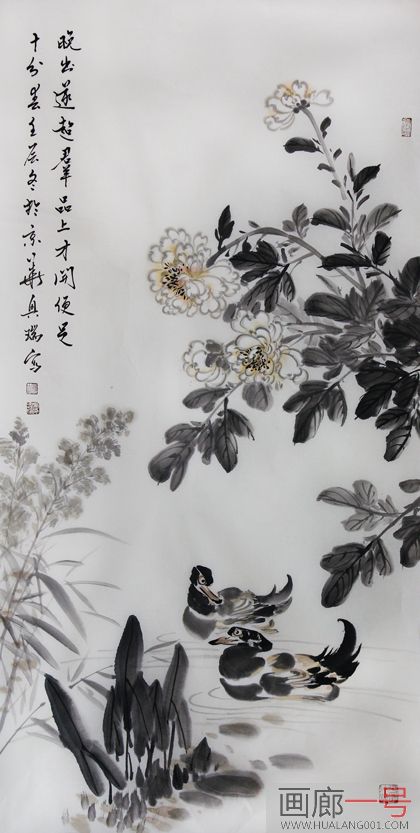 晚出遂超羣品上才開便足
十分春壬辰冬於京華真瑞寫
画廊一号
WWW.HUALANG001.COM